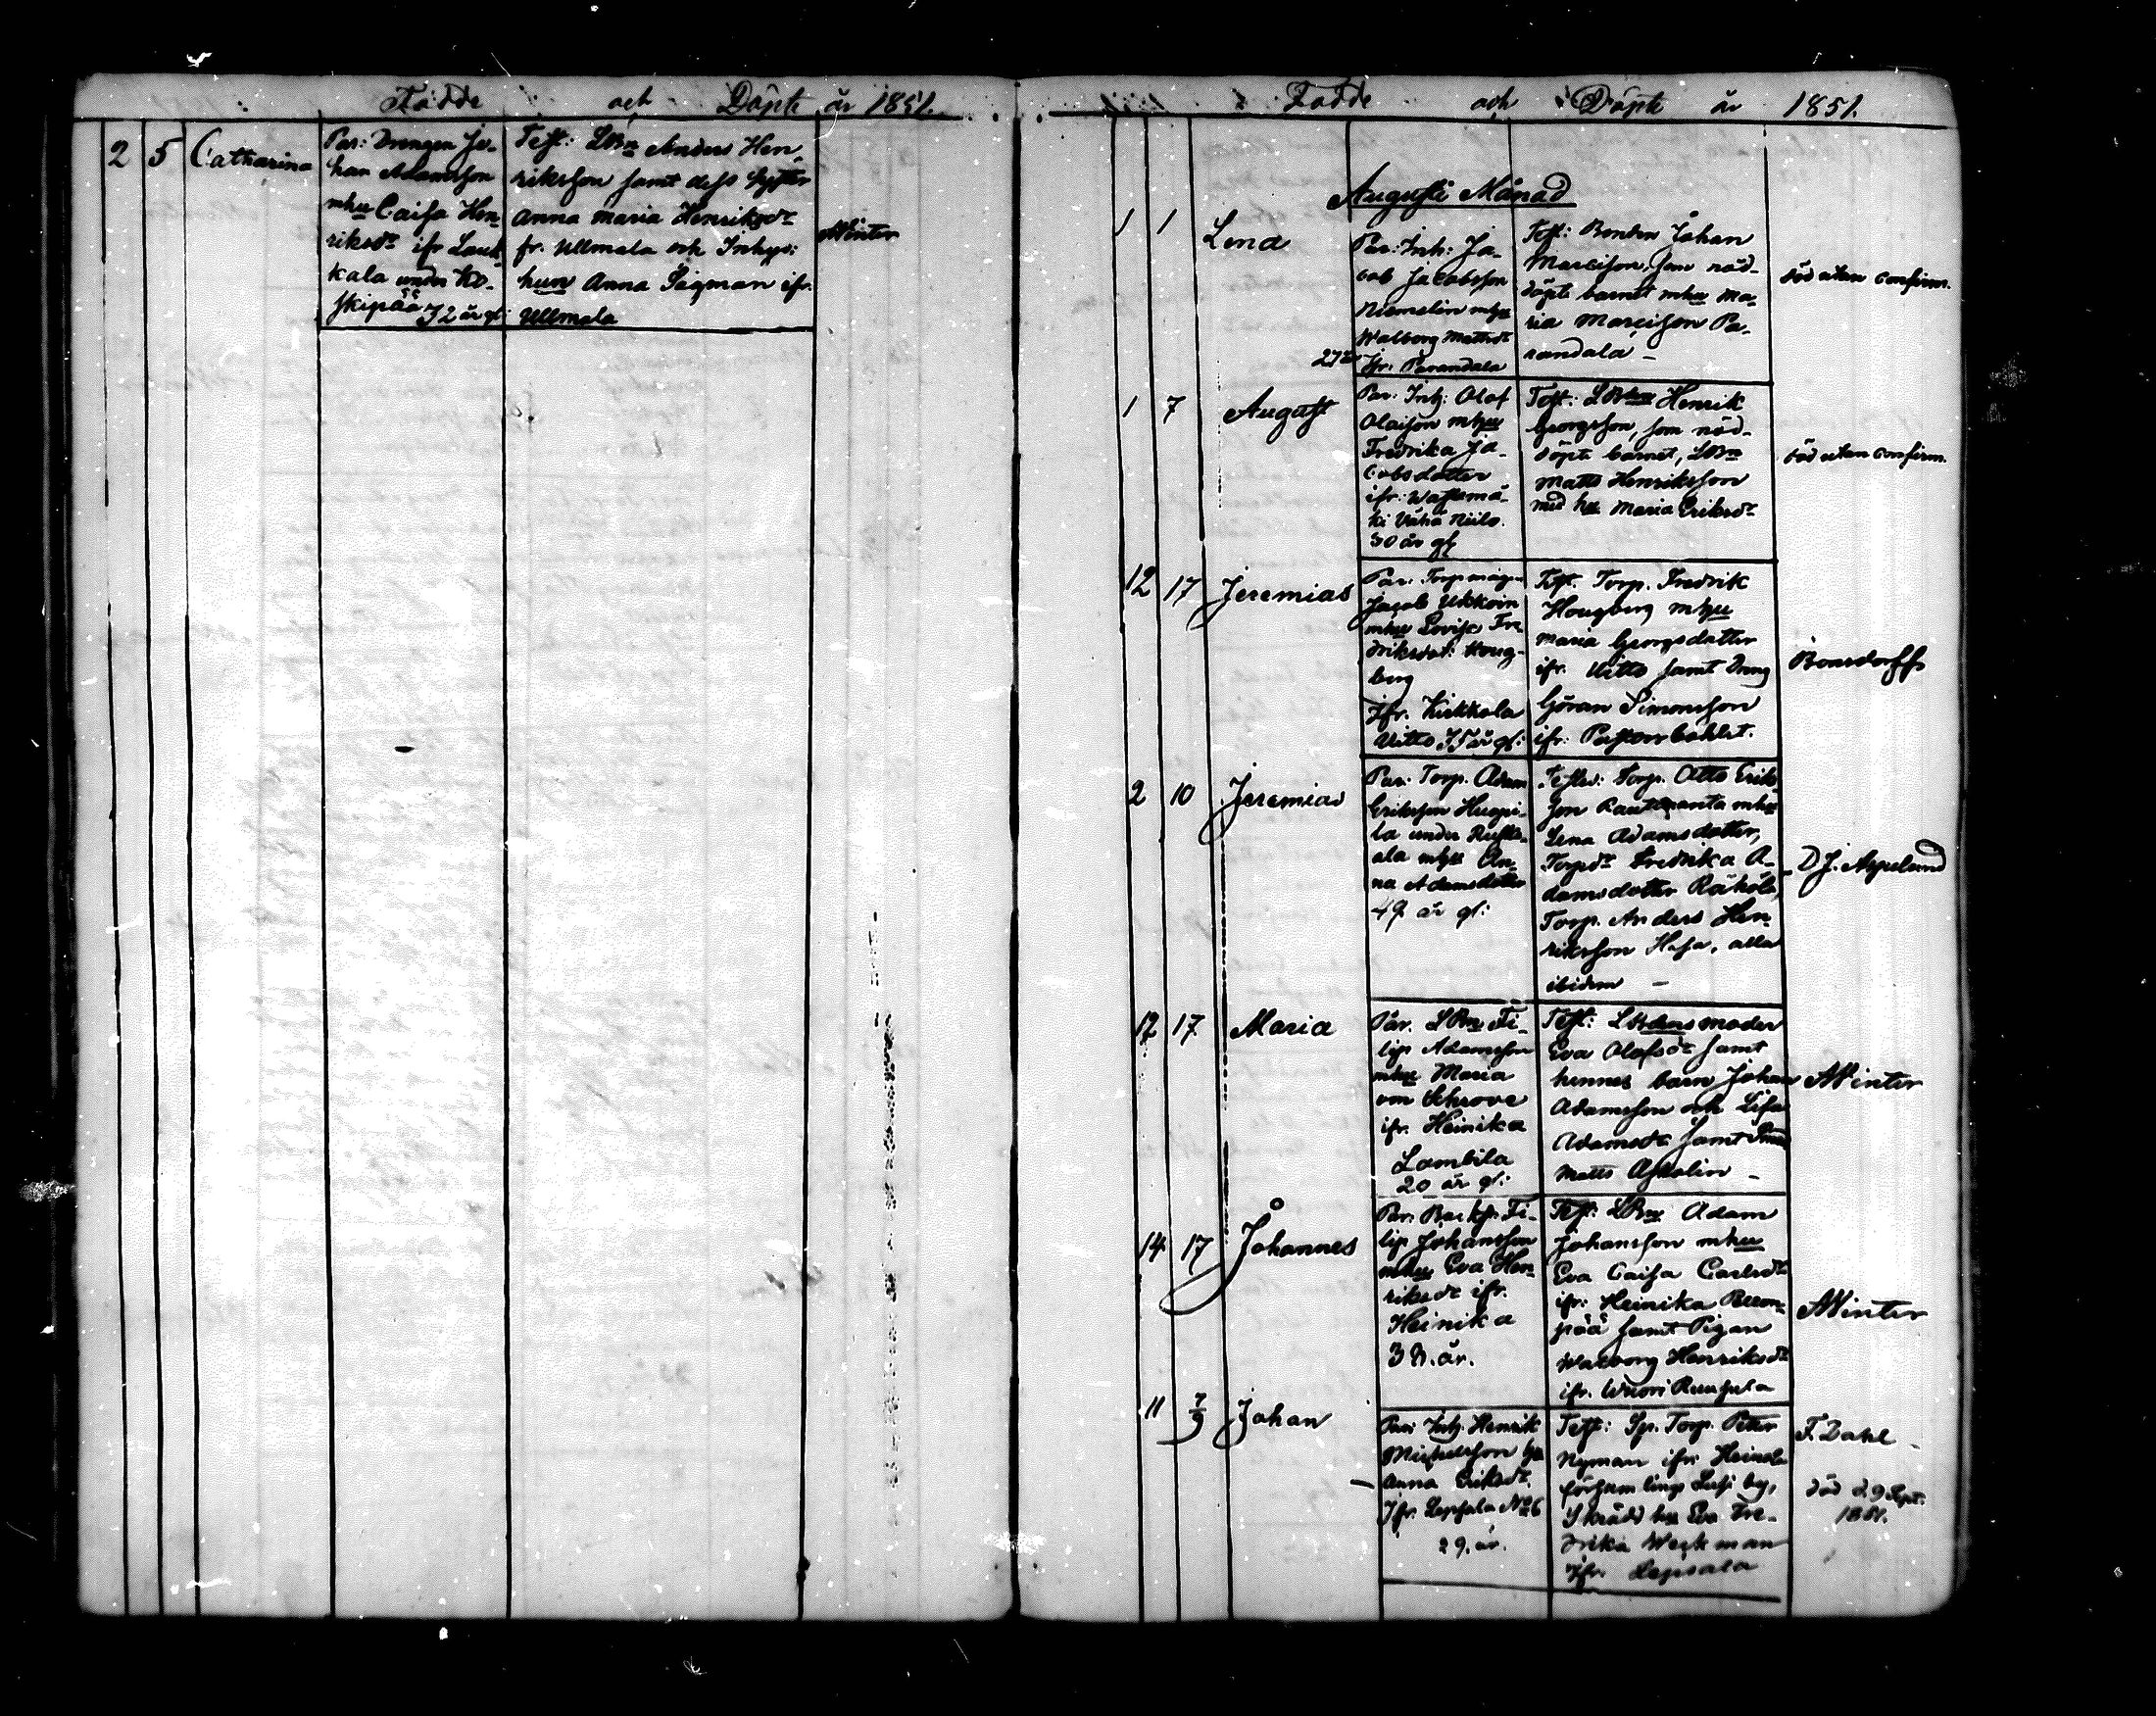 Födde och Döpte år 1851.
2 5 Catharina
Par: Drengen Jo-
han Adamsson
mhu Caisa Hen-
riksdr ifr Lauk-
kala under Ko-
skipää 32 år gl:
Test: LBn Anders Hen-
riksson samt dess syster
Anna Maria Henriksdr
fr. Ullmala och Inhys:
hun Anna Sagman ifr.
Ullmala
AWinter
Födde och Döpte år 1851.
Augusti Månad
1 1 Lena
Par: Inh: Ja-
cob Jacobsson
Niemelin mhu
Walborg Mattsdr
27 år
ifr. Parandala
Test: Bonden Johan
Marcisson, som nöd-
döpte barnet mhu Ma-
ria Marcisson Pa-
randala -
död utan confirm.
1 7 August
Par: Inh: Olof
Olaisson mhu
Fredrika Ja-
cobsdotter
ifr:
ki Vähä Niilo.
30 år gl
Test: LBn Henrik
Georgsson, som nöd-
döpte barnet, LBn
Matts Henriksson
med hu Maria Eriksdr
död utan confirm.
12 17 Jeremias
Par: Torpmåg
Jacob Ukkoin
mhu Lovisa Fre-
driksdot: Houg-
berg
ifr. Kirkkola
Uitto 35 år gl:
Test. Torp. Fredrik
Hougberg mhu
Maria Georgsdotter
ifr. Uitto samt Dreng
Göran Simonsson
ifr: Pastorsbohlet.
Bonsdorff
2 10 Jeremias
Par: Torp. Adam
Eriksson Huopi-
la under
ala mhu An-
na Adamsdotter
49 år gl:
Testes: Torp. Otto Erik-
son Rautaranta mhu
Lena Adamsdotter,
Torpdr Fredrika A-
damsdotter Räkölä,
Torp. Anders Hen-
riksson Hasa, alla
ibidem -
D J. Aspelund
12 17 Maria
Par. LBn Fi-
lip Adamsson
mhu Maria
von Schrove
ifr. Heinika
Lambila
20 år gl:
Test: LBdens moder
Eva Olofsdr samt
hennes barn Johan
Adamsson och Lisa
Adamsdr samt
Matts Askolin -
AWinter
14 17 Johannes
Par: Backst. Fi-
lip Johansson
mhu Eva Hen-
riksdr ifr.
Heinika
38. år.
Test: LBn Adam
Johansson mhu
Eva Caisa Carlsdr
ifr: Heinika Peron-
pää samt Pigan
Walborg Henriksdr
ifr. Wuori Ruusula
AWinter
11 7/9 Johan
Par: Inh. Henrik
Michelsson hu
Anna Eriksdr.
ifr. Lepsala No 6
29. år.
Test: Sp. Torp. Peter
Nyman ifr. Heinola
församlings Lusi by,
Skrädd hu Eva Fre-
drika Werkman
ifr. Lepsala
F. Dahl -
död 29 Sept.
1851.